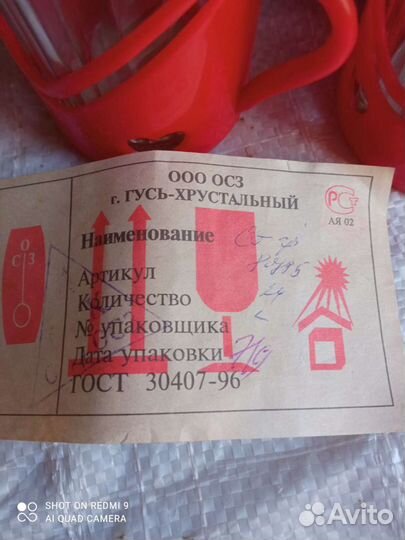 ООО ОСЗ
г. ГУСЬ-ХРУСТАЛЬНЫЙ
РСТ
АЯ 02
О
С З
Наименование
Артикул
Количество
№ упаковщика
Дата упаковки
ГОСТ 30407-96
SHOT ON REDMI 9
AI QUAD CAMERA
Avito